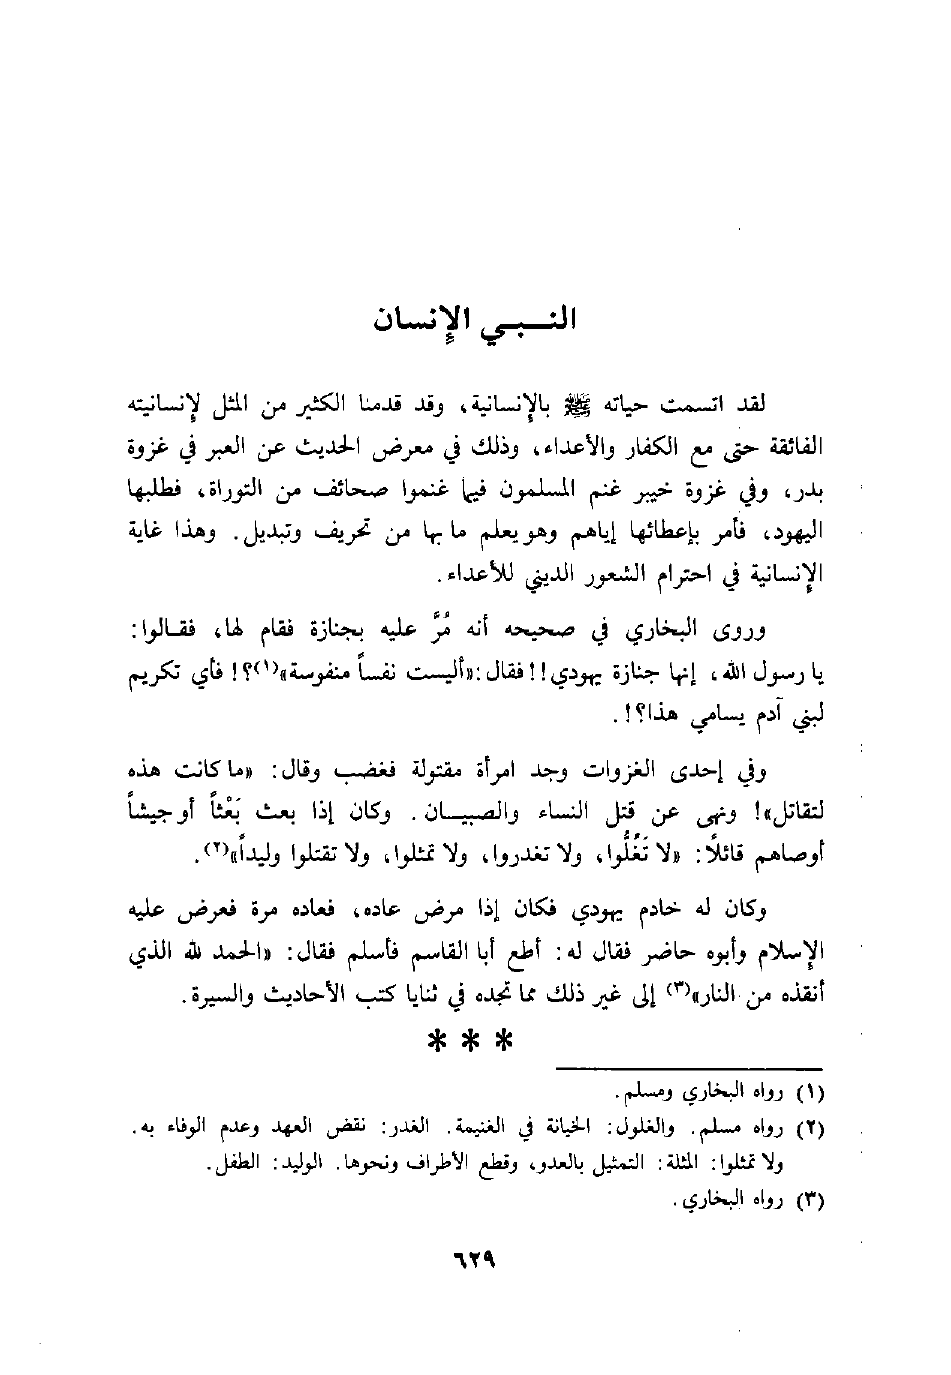 النـــبـــي الإنسان
لقد اتسمت حياته ﷺ بالإنسانية، وقد قدمنا الكثير من المثل لإنسانيته
الفائقة حتى مع الكفار والأعداء، وذلك في معرض الحديث عن العبر في غزوة
بدر، وفي غزوة خيبر غنم المسلمون فيها غنموا صحائف من التوراة، فطلبها
اليهود، فأمر بإعطائها إياهم وهو يعلم ما بها من تحريف وتبديل. وهذا غاية
الإنسانية في احترام الشعور الديني للأعداء.
وروى البخاري في صحيحه أنه مُرَّ عليه بجنازة فقام لها، فقـالوا:
يا رسول الله، إنها جنازة يهودي!! فقال: «أليست نفساً منفوسة»(١)؟! فأي تكريم
لبني آدم يسامي هذا؟!.
وفي إحدى الغزوات وجد امرأة مقتولة فغضب وقال: «ما كانت هذه
لتقاتل»! ونهى عن قتل النساء والصبيـان. وكان إذا بعث بَعْثاً أو جيشاً
أوصاهم قائلًا: «لا تَغُلُّوا، ولا تغدروا، ولا تمثلوا، ولا تقتلوا وليداً»(٢).
وكان له خادم يهودي فكان إذا مرض عاده، فعاده مرة فعرض عليه
الإسلام وأبوه حاضر فقال له: أطع أبا القاسم فأسلم فقال: «الحمد لله الذي
أنقذه من النار»(٣) إلى غير ذلك مما تجده في ثنايا كتب الأحاديث والسيرة.
* * *
(١) رواه البخاري ومسلم.
(٢) رواه مسلم. والغلول: الخيانة في الغنيمة. الغدر: نقض العهد وعدم الوفاء به.
ولا تمثلوا: المثلة: التمثيل بالعدو، وقطع الأطراف ونحوها. الوليد: الطفل.
(٣) رواه البخاري.
٦٢٩